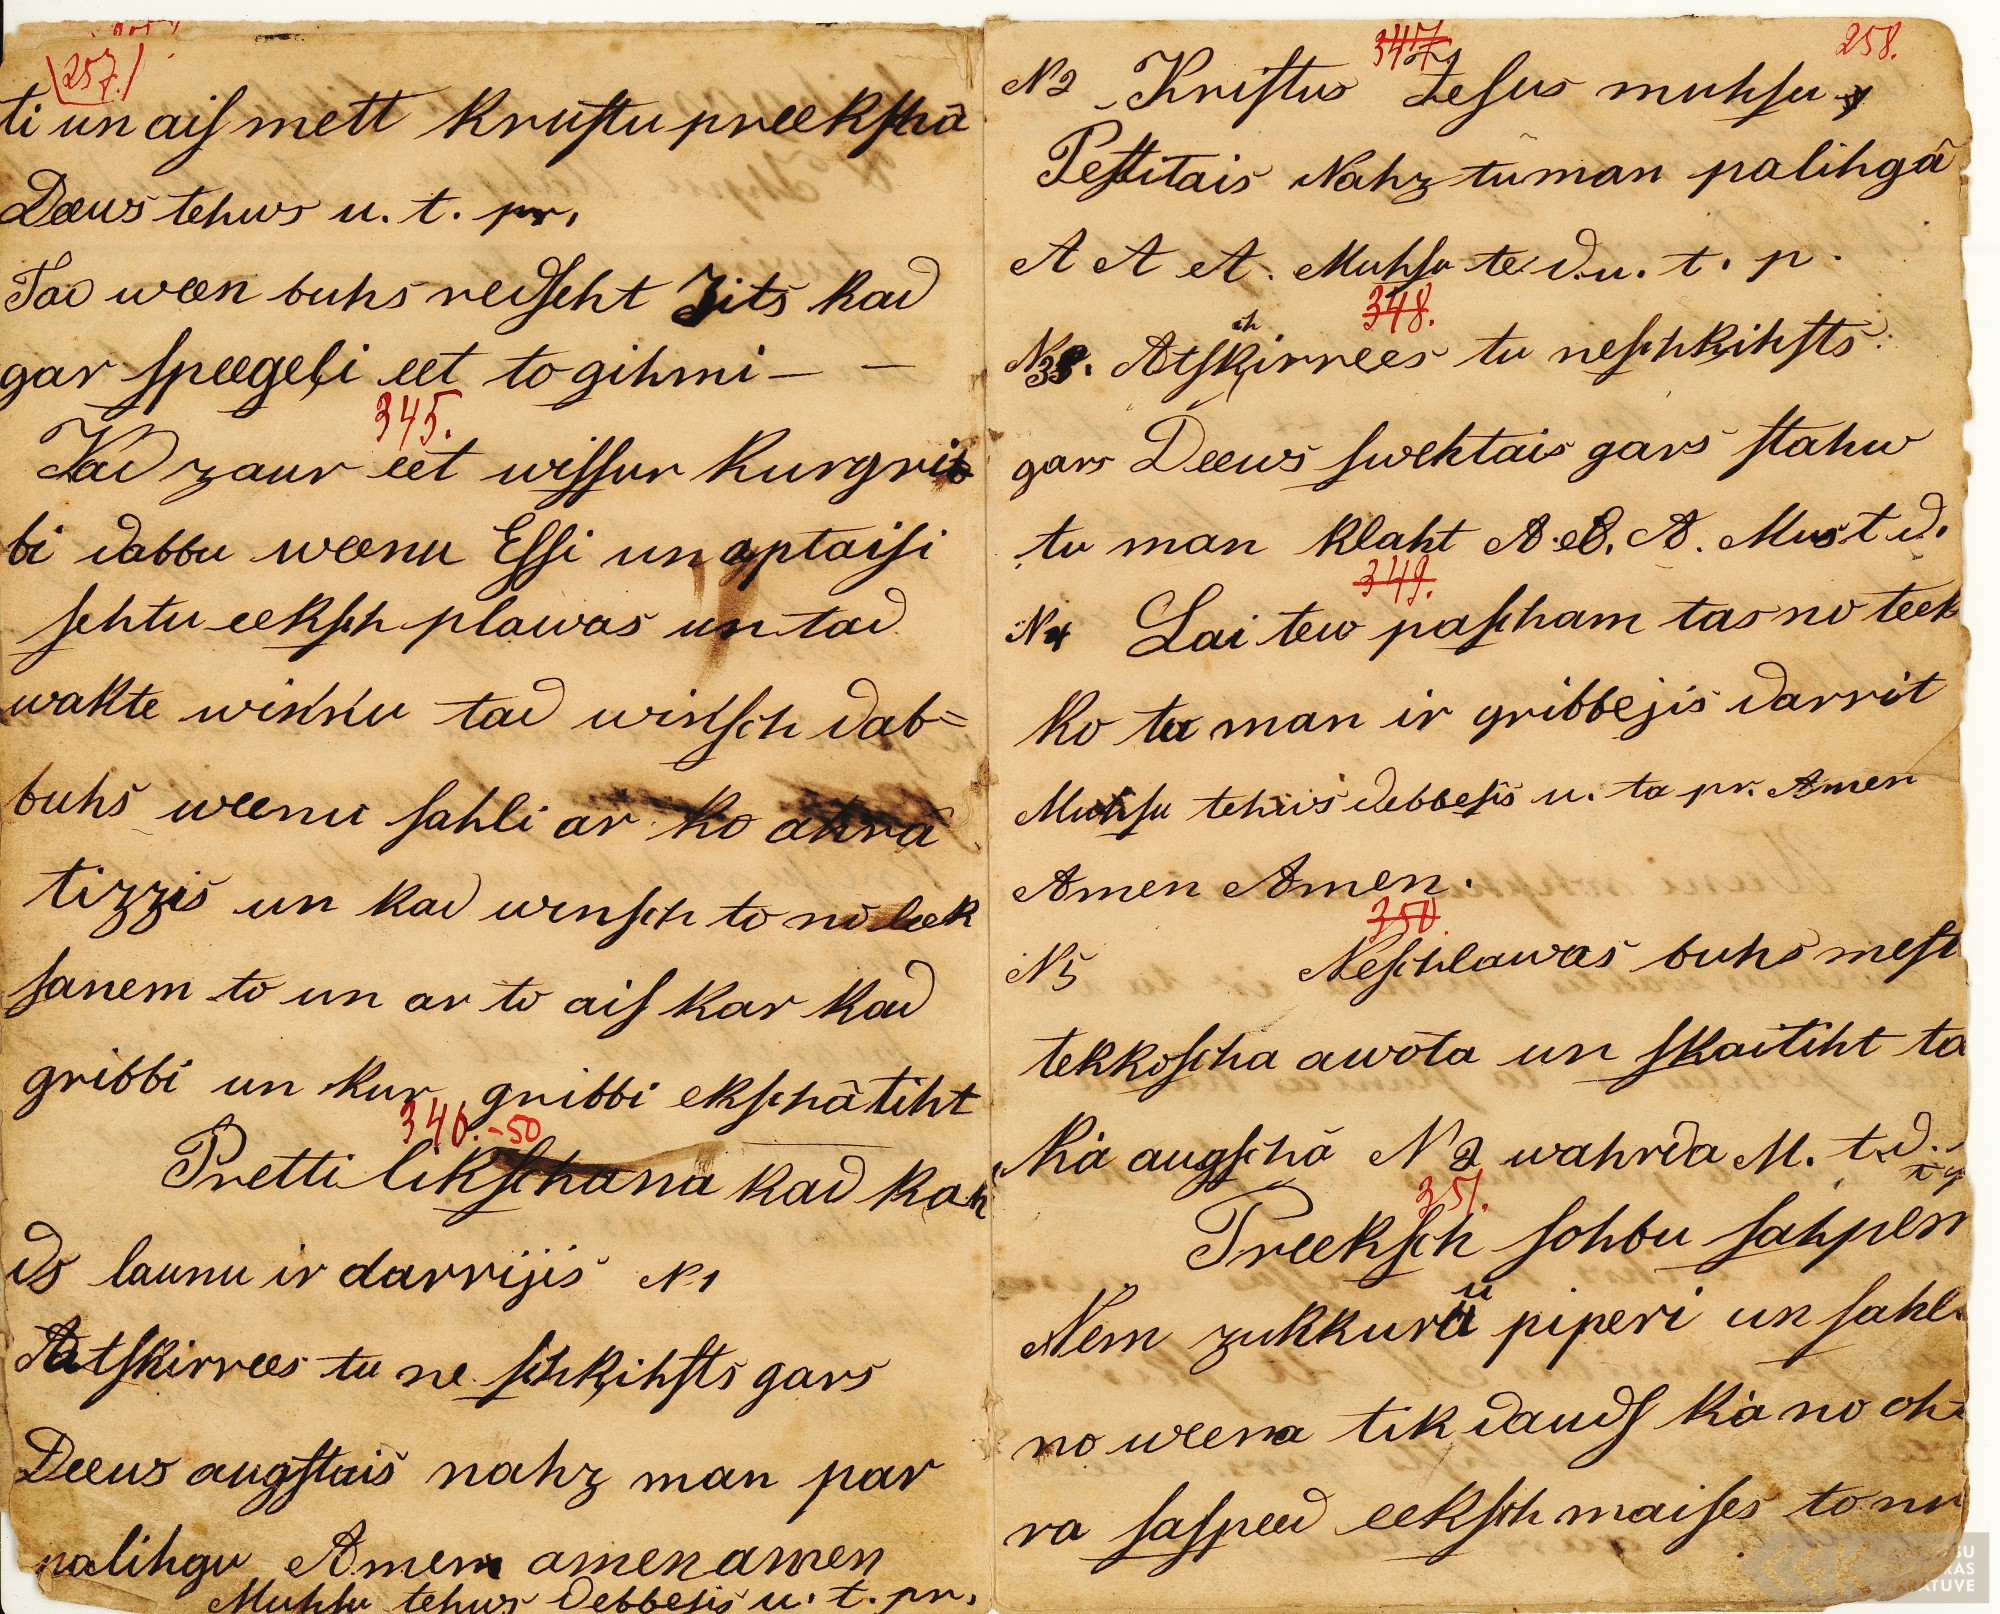 257.
ti un aiſ mett kruſtu preekſchâ
Deews tehws u. t. pr.
Tad ween buhs redſeht Zits kad
gar ſpeegeļi eet to gihmi — —
345.
Kad zaur eet wiſſur kur gri
bi dabbu weenu Eſſi un aptaiſi
ſehtu eekſch plawas un tad
wakte wiņņu tad wiņſch dab=
buhs weenu ſahli ar ko ahrâ
tizzis un kad winſch to no leek
ſanem to un ar to aiſ kar kad
gribbi un kur gribbi ekſchâ tiht
346.-50
Pretti likſchana kad kah
ds launu ir darrijis N1
Atſkirrees tu ne ſchķihſts gars
Deews augſtais nahz man par
palihgu Amen amen amen
Muhſu tehws debbeſis u. t. pr.
258.
347
N2 Kriſtus Jeſus muhſu
Peſtitais Nahz tu man palihgâ
A A A. Muhſu te. d. u. t. p.
348.
N3. Atſchķirrees tu neſchķihſts
gars Deews ſwehtais gars ſtahw
tu man klaht A. A. A. Mus t d.
349.
N4 Lai tew paſcham tas no teek
ko tu man ir gribbejis darrit
Muhſu tehws debbeſis u. ta pr. Amen
Amen Amen.
350
N5 Neſchlawas buhs meſt
tekkoſcha awota un ſkaitiht ta
Kà augſchâ N2 wahrda M. t. d.
351.
Preekſch ſohbu ſahpem
Nem zukkuru piperi un ſahl
no weena tik daudſ kà no oht
ra ſaſpeed eekſch maiſes to nu